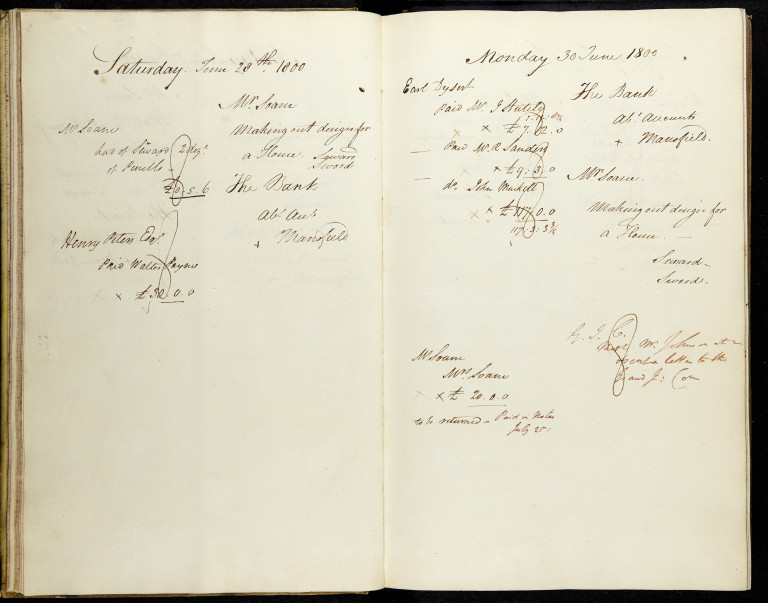 Saturday June 28th. 1800
Mr Soane
had of Seward 2 doz.
of Pencils
£0.5.6
Henry Peters Esqr.
Paid Walter Payne
x £32.0.0
Mr. Soane
Making out design for
a House. Seward
Sword
The Bank
abt. Acts
+ Mansfield
Monday 30 June 1800
Earl Dysart
Paid Mr. J
x x £7.12.0
— Paid Mr. R. Sanders
x £9.3.0
— do. John
x x £117.0.0
117.3.
Mr Soane
Mrs. Soane
x £ 20.0.0
to be returned – Paid in Notes
July 25:
The Bank
abt. Accounts
+ Mansfield.
Mr. Soane.
Making out design for
a House. —
Seward –
Sword –
G. J. C.
Mr. Johnson
a letter to the
and J: Com